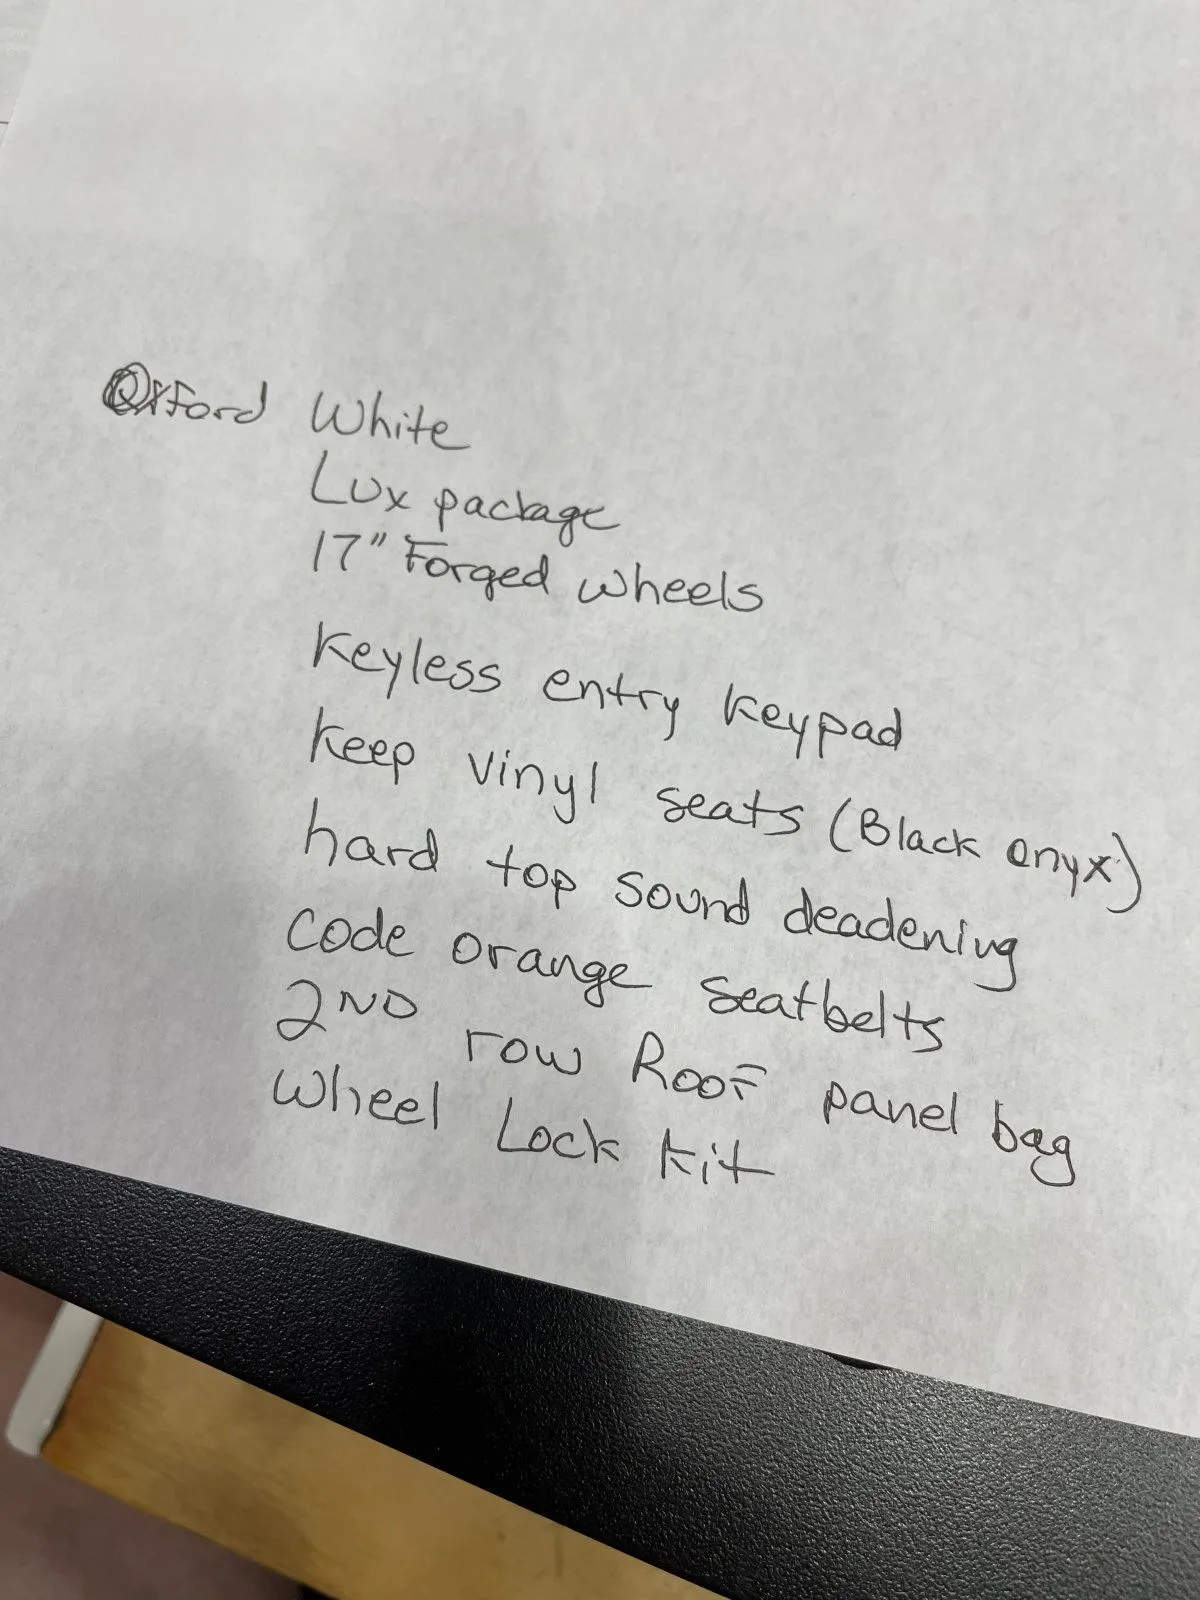 Oxford White
Lux package
17" Forged wheels
Keyless entry keypad
Keep vinyl seats (Black onyx)
hard top sound deadening
code orange seatbelts
2ND row Roof panel bag
Wheel Lock kit